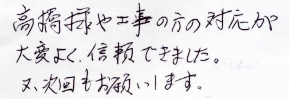 高橋様や工事の方の対応が
大変よく、信頼できました。
又、次回もお願いします。